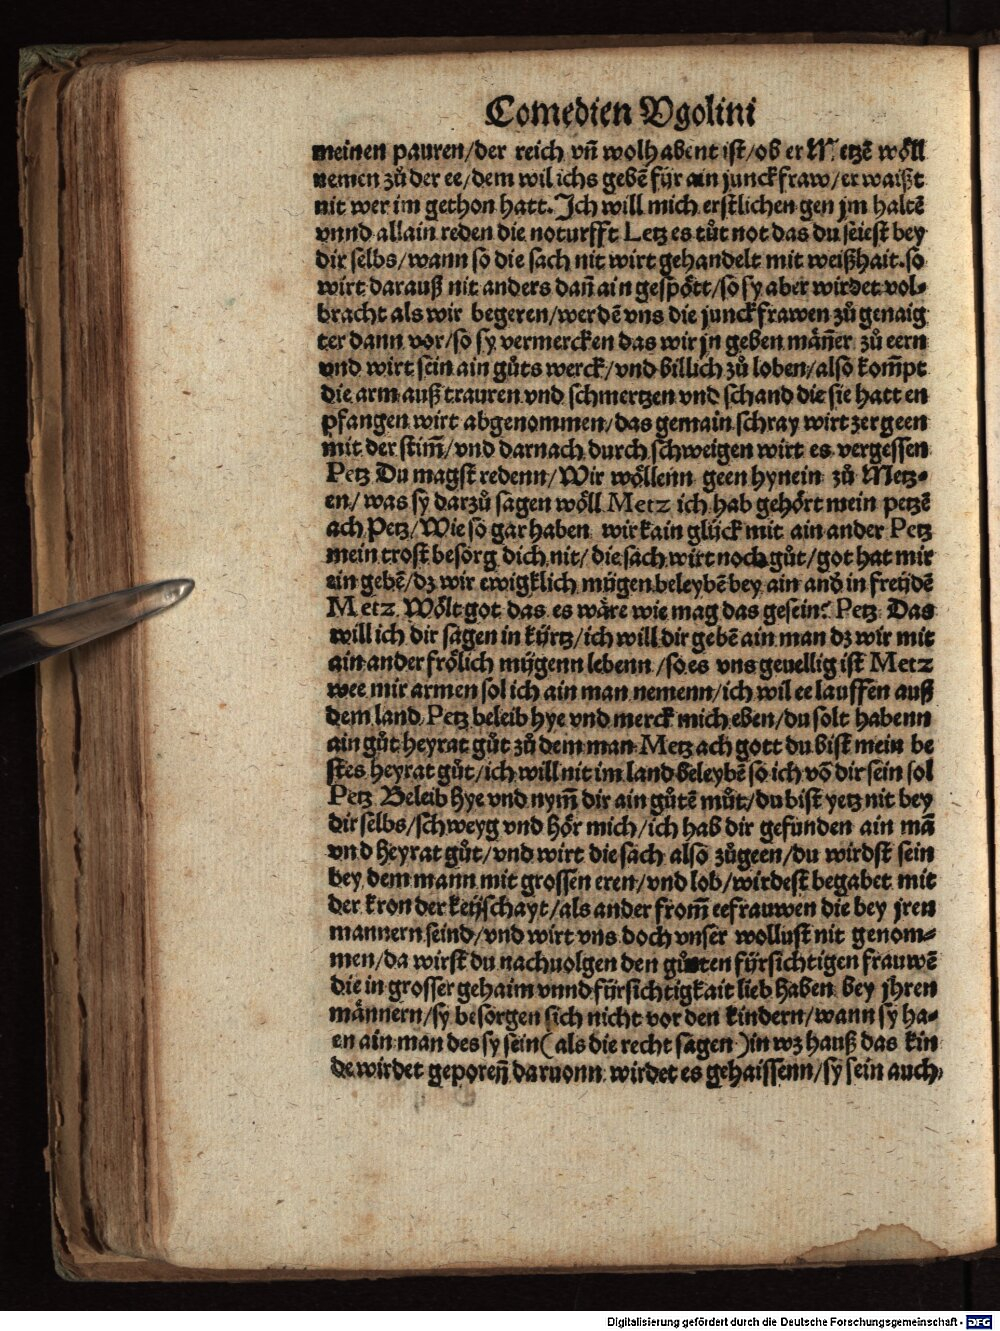 Comedien Vgolini
meinen pauren/der reich vñ wolhabent ist/ob er Metzē wöll
nemen zů der ee/dem wil ichs gebē für ain junckfraw/er waißt
nit wer im gethon hatt. Ich will mich erstlichen gen jm haltē
vnnd allain reden die noturfft Letz es tůt not das du seiest bey
dir selbs/wann so die sach nit wirt gehandelt mit weißhait.so
wirt darauß nit anders dañ ain gespött/so sy aber wirdet vol-
bracht als wir begeren/werdē vns die junckfrawen zů genaig
ter dann vor/so sy vermercken das wir jn geben mäñer zů eern
vnd wirt sein ain gůts werck/vnd billich zů loben/also kom̄pt
die arm auß trauren vnd schmertzen vnd schand die sie hatt en
pfangen wirt abgenommen/das gemain schray wirt zergeen
mit der stim̄/vnd darnach durch schweigen wirt es vergessen
Petz Du magst redenn/Wir wöllenn geen hynein zů Metz-
en/was sy darzů sagen wöll Metz ich hab gehört mein petzē
ach Petz/Wie so gar haben wir kain glück mit ain ander Petz
mein trost besorg dich nit/die sach wirt noch gůt/got hat mir
ein gebē/dz wir ewigklich mügen beleybē bey ain and̄ in freüdē
Metz Wölt got das es wäre wie mag das gesein? Petz Das
will ich dir sagen in kürtz/ich will dir gebē ain man dz wir mit
ain ander frölich mügenn lebenn/so es vns geuellig ist Metz
wee mir armen sol ich ain man nemenn/ich wil ee lauffen auß
dem land Petz beleib hye vnd merck mich eben/du solt habenn
ain gůt heyrat gůt zů dem man Metz ach gott du bist mein be
stes heyrat gůt/ich will nit im land beleybē so ich vō dir sein sol
Petz Beleib hye vnd nym̄ dir ain gůtē můt/du bist yetz nit bey
dir selbs/schweyg vnd hör mich/ich hab dir gefunden ain mā
vnd heyrat gůt/vnd wirt die sach also zůgeen/du wirdst sein
bey dem mann mit grossen eren/vnd lob/wirdest begabet mit
der kron der keüschayt/als ander from̄ eefrauwen die bey jren
mannern seind/vnd wirt vns doch vnser wollust nit genom-
men/da wirst du nachuolgen den gůten fürsichtigen frauwē
die in grosser gehaim vnnd fürsichtigkait lieb haben bey jhren
männern/sy besorgen sich nicht vor den kindern/wann sy ha-
en ain man des sy sein(als die recht sagen)in wz hauß das kin
de wirdet geporeñ daruonn wirdet es gehaissenn/sy sein auch
Digitalisierung gefördert durch die Deutsche Forschungsgemeinschaft - DFG